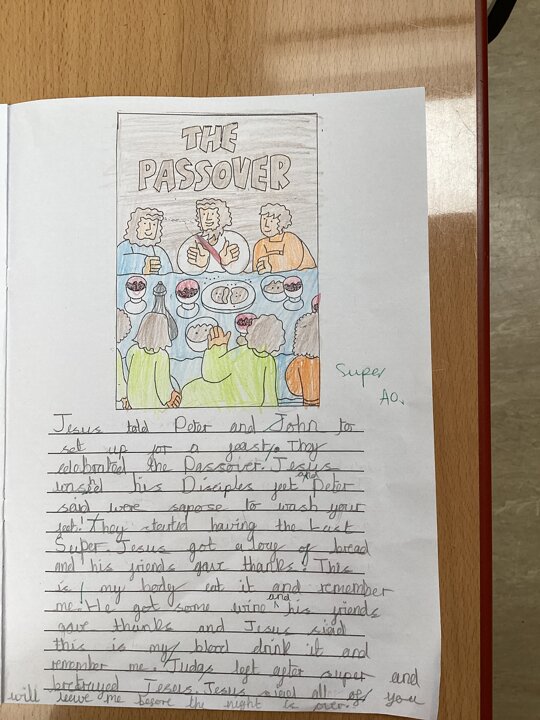 THE
PASSOVER
Super
AO.
Jesus told Peter and John to
set up for a feast. They
celebrated the Passover. Jesus
washed his Disciples feet and Peter
said were supose to wash your
feet! They started having the Last
Super. Jesus got a loay of bread
and his friends gave thanks. This
is my body eat it and remember
me. He got some wine and his friends
gave thanks and Jesus siad
this is my blood drink it and
remember me. Judas left after super and
bertrayed Jesus. Jesus siad all of you
will leave me before the night is over.